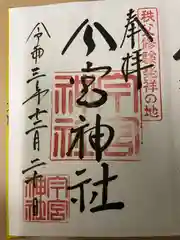 秩父修験発祥の地
奉拝
今宮神社
令和三年十二月二十日
今宮
神社